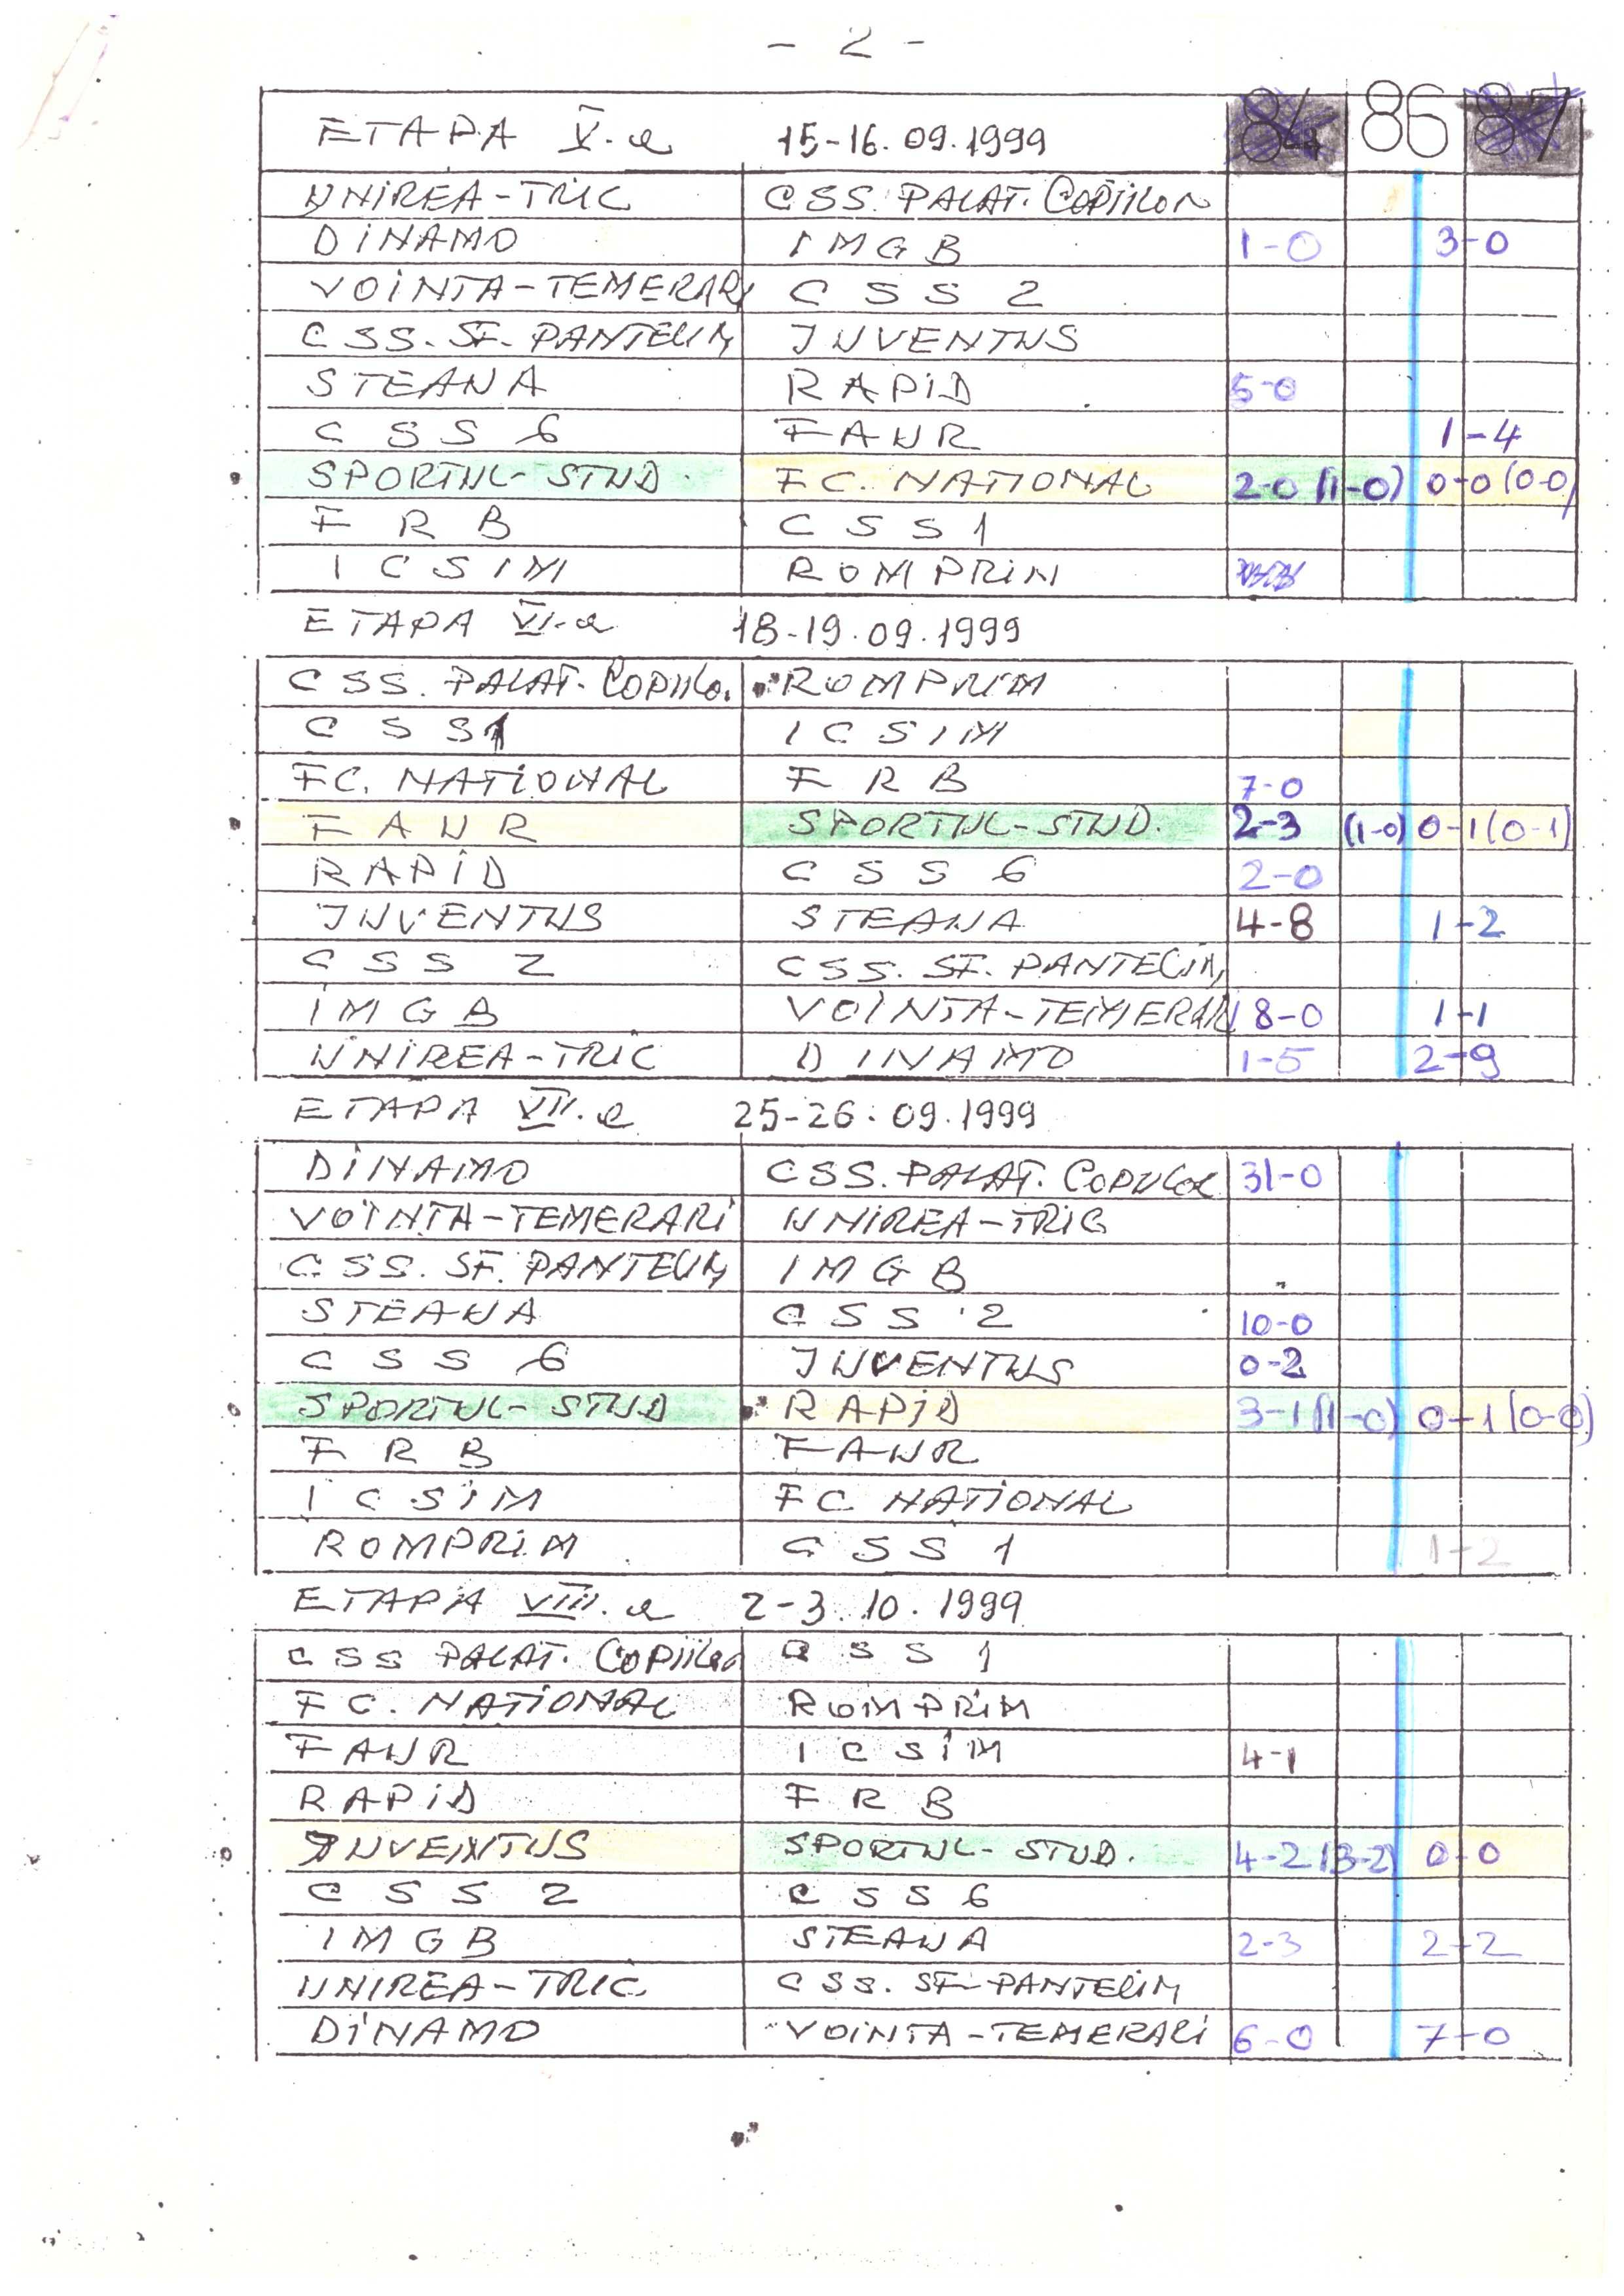 - 2 -
ETAPA V.a 15-16.09.1999 86
UNIREA-TRIC CSS. PALAT. COPIILOR
DINAMO IMGB 1-0 3-0
VOINTA-TEMERARI CSS 2
CSS. SF. PANTELIM JUVENTUS
STEAUA RAPID 5-0
CSS 6 FAUR 1-4
SPORTUL-STUD. FC. NATIONAL 2-0 (1-0) 0-0 (0-0)
FRB CSS 1
ICSIM ROMPRIM
ETAPA VI-a 18-19.09.1999
CSS. PALAT. COPIILO. ROMPRIM
CSS 1 ICSIM
FC. NATIONAL FRB 7-0
FAUR SPORTUL-STUD. 2-3 (1-0) 0-1 (0-1)
RAPID CSS 6 2-0
JUVENTUS STEAUA 4-8 1-2
CSS 2 CSS. SF. PANTELIM
IMGB VOINTA-TEMERARI 8-0 1-1
UNIREA-TRIC DINAMO 1-5 2-9
ETAPA VII.a 25-26.09.1999
DINAMO CSS. PALAT. COPIILOR 31-0
VOINTA-TEMERARI UNIREA-TRIC
CSS. SF. PANTELIM IMGB
STEAUA CSS 2 10-0
CSS 6 JUVENTUS 0-2
SPORTUL-STUD RAPID 3-1 (1-0) 0-1 (0-0)
FRB FAUR
ICSIM FC NATIONAL
ROMPRIM CSS 1 1-2
ETAPA VIII.a 2-3.10.1999
CSS PALAT. COPIILOR CSS 1
FC. NATIONAL ROMPRIM
FAUR ICSIM 4-1
RAPID FRB
JUVENTUS SPORTUL-STUD. 4-2 (3-2) 0-0
CSS 2 CSS 6
IMGB STEAUA 2-3 2-2
UNIREA-TRIC. CSS. SF-PANTELIM
DINAMO VOINTA-TEMERARI 6-0 7-0